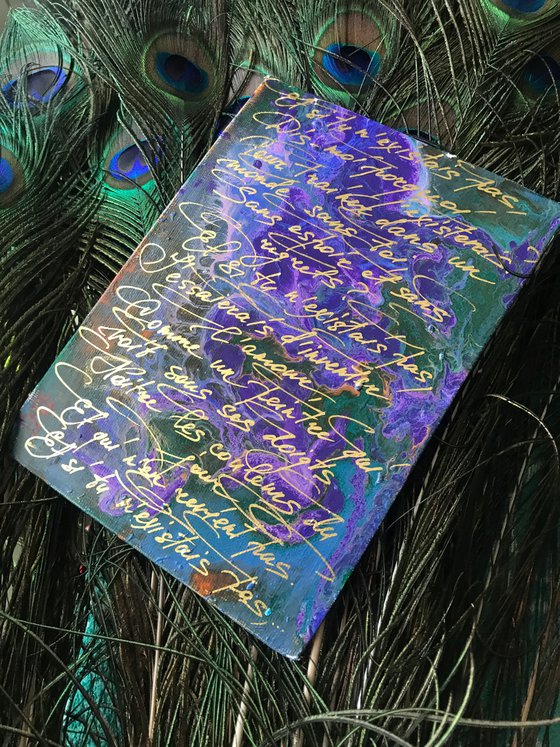 Et si tu n'existais pas,
Dis-moi pourquoi j'existerai,
Pour traîner dans un
monde sans toi
Sans espoir et sans
regrets.
Et si tu n'existais pas,
J'essaierais d'inventer
l'amour,
Comme un peintre qui
voit sous ses doigts
Naître les couleurs du
jour
Et qui n'en revient pas
Et si tu n'existais pas...